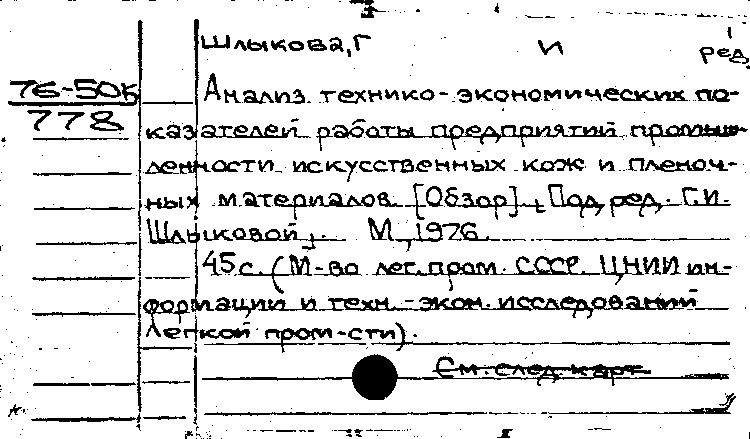 Шлыкова, Г И ред.
76-50к
778
Анализ технико-экономических по-
казателей работы предприятий промыш-
ленности искусственных кож и пленоч-
ных материалов. [Обзор]. Под ред. Г.И.
Шлыковой. М., 1976.
45 с. (М-во лег. пром. СССР. ЦНИИ ин-
формации и техн.-экон. исследований
легкой пром-сти).
См. след. карт.